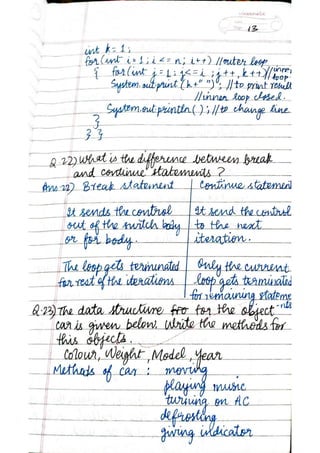 13
int k = 1;
for (int i = 1; i <= n; i++) //outer loop
{ for (int j = 1; j <= i; j++, k++) //inner loop
System.out.print (k+" "); // to print result
//inner loop closed.
System.out.println(); // to change line
}
} }
Q.22) What is the difference between break
and continue statements?
Ans.22) Break statement | Continue statement
It sends the control | It send the control
out of the switch body | to the next
or for body. | iteration.
The loop gets terminated | Only the current
for rest of the iterations | loop gets terminated
for remaining statements
Q.23) The data structure for the object
car is given below write the methods for
this objects.
Colour, Weight, Model, Year
Methods of car : moving
playing music
turning on AC
defrosting
giving indicator